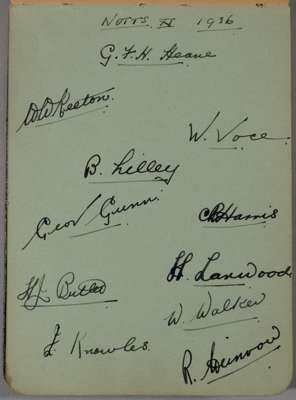 Notts. XI 1936
G.F.H. Heane
W W Keeton.
W. Voce.
B. Lilley
Geo V Gunn.
C B Harris
H J Butler
H. Larwood
W. Walker
J Knowles.
R.